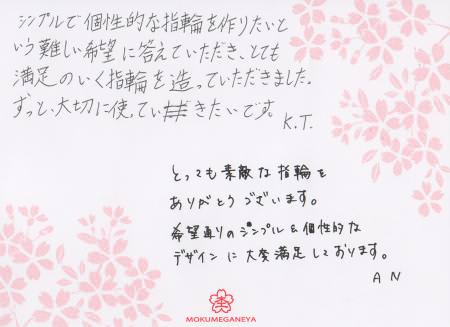 シンプルで個性的な指輪を作りたいと
いう難しい希望に答えていただき、とても
満足のいく指輪を造っていただきました。
ずっと、大切に使っていきたいです。
K.T.
とっても素敵な指輪を
ありがとうございます。
希望通りのシンプル&個性的な
デザインに大変満足しております。
A N
MOKUMEGANEYA